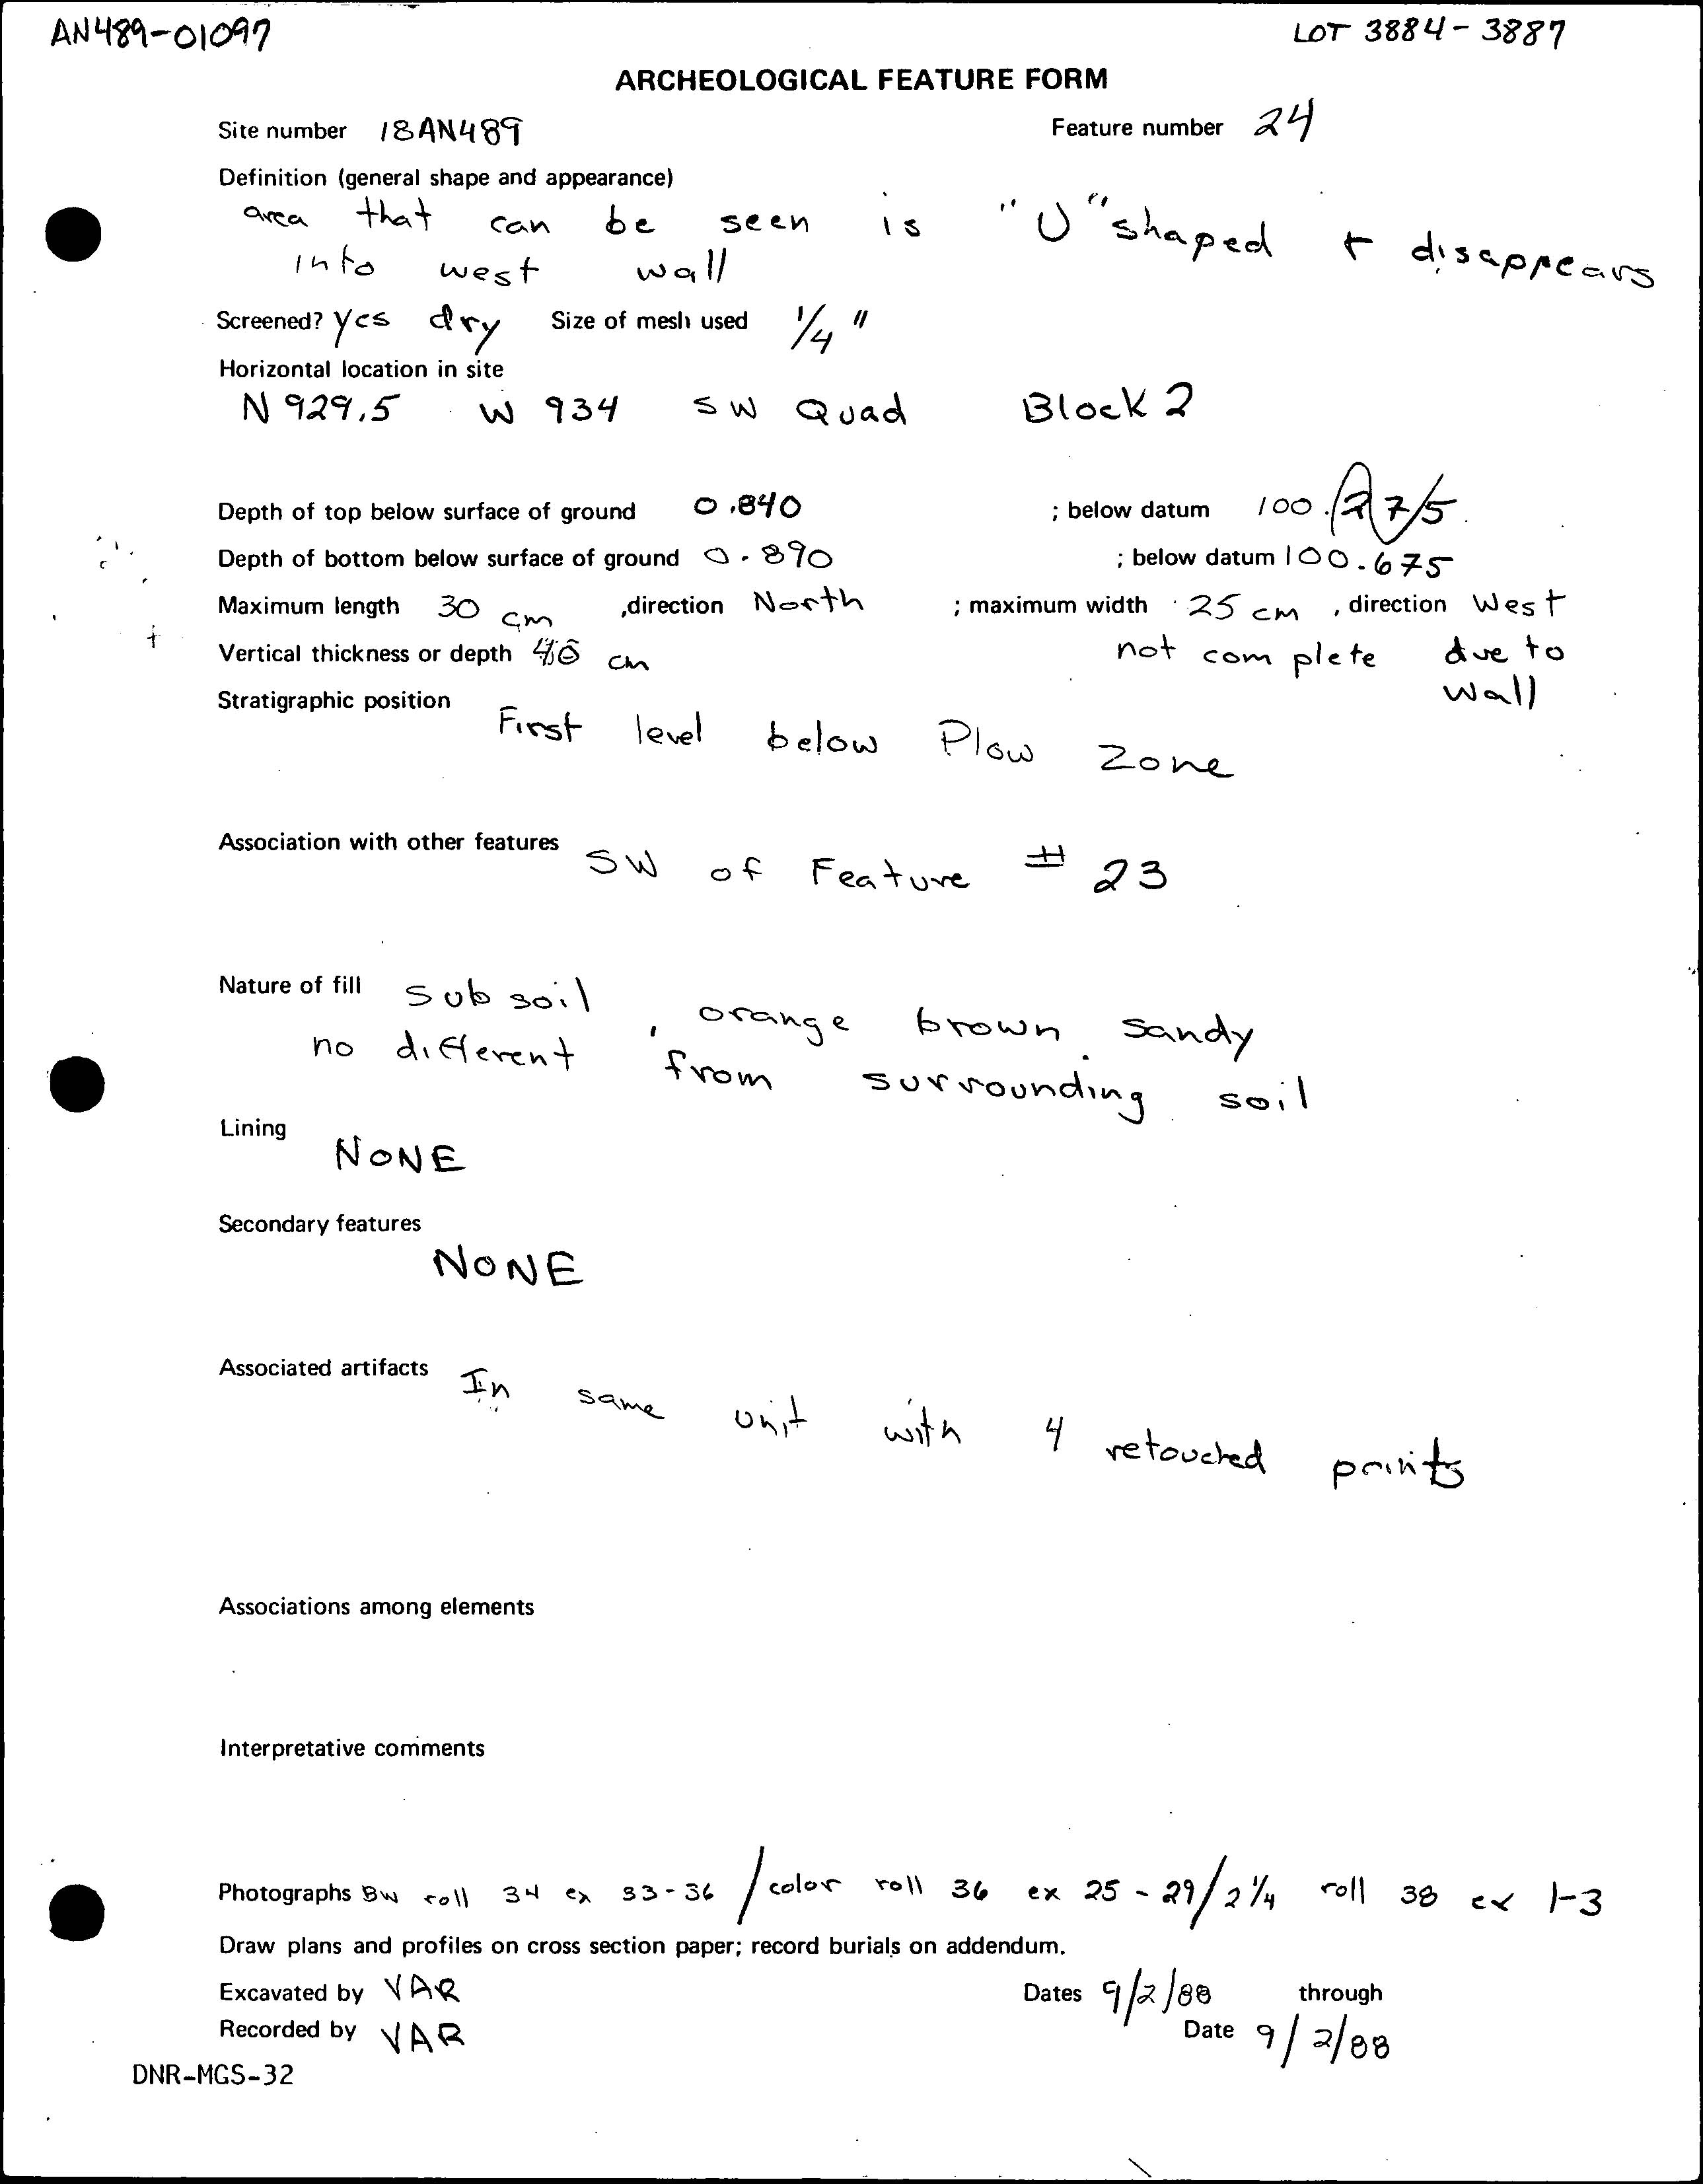 AN489-01097 LOT 3884-3887
ARCHEOLOGICAL FEATURE FORM
Site number 18AN489 Feature number 24
Definition (general shape and appearance)
area that can be seen is "U" shaped + disappears
into west wall
Screened? yes dry Size of mesh used 1/4"
Horizontal location in site
N 929.5 W 934 SW Quad Block 2
Depth of top below surface of ground 0.840 ; below datum 100.
Depth of bottom below surface of ground 0.890 ; below datum 100.675
Maximum length 30 cm ,direction North ; maximum width 25 cm , direction West
Vertical thickness or depth cm not complete due to
wall
Stratigraphic position First level below Plow Zone
Association with other features SW of Feature # 23
Nature of fill Sub soil, orange brown sandy
no different from surrounding soil
Lining
NONE
Secondary features
NONE
Associated artifacts In same unit with 4 retouched points
Associations among elements
Interpretative comments
Photographs BW roll 34 ex 33-36 / color roll 36 ex 25-29 / 2 1/4 roll 38 ex 1-3
Draw plans and profiles on cross section paper; record burials on addendum.
Excavated by VAR Dates 9/2/88 through
Recorded by VAR Date 9/2/88
DNR-MGS-32